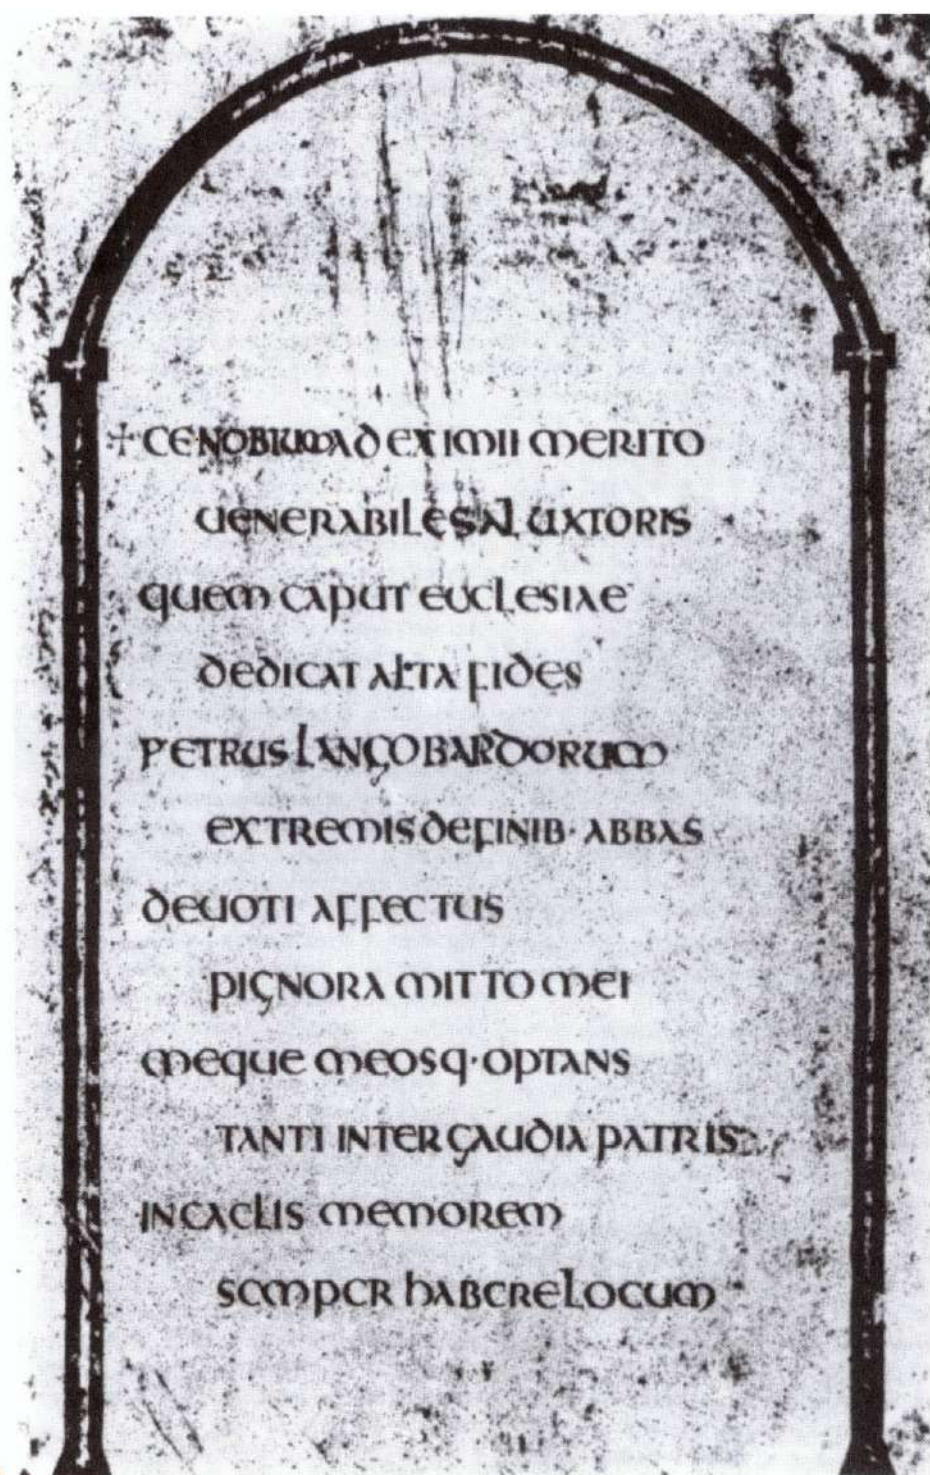 ✝ CENOBIUM AD EXIMII MERITO
UENERABILE SALUATORIS
QUEM CAPUT ECCLESIAE
DEDICAT ALTA FIDES
PETRUS LANGOBARDORUM
EXTREMIS DE FINIB· ABBAS
DEUOTI AFFECTUS
PIGNORA MITTO MEI
MEQUE MEOSQ· OPTANS
TANTI INTER GAUDIA PATRIS
IN CAELIS MEMOREM
SEMPER HABERE LOCUM